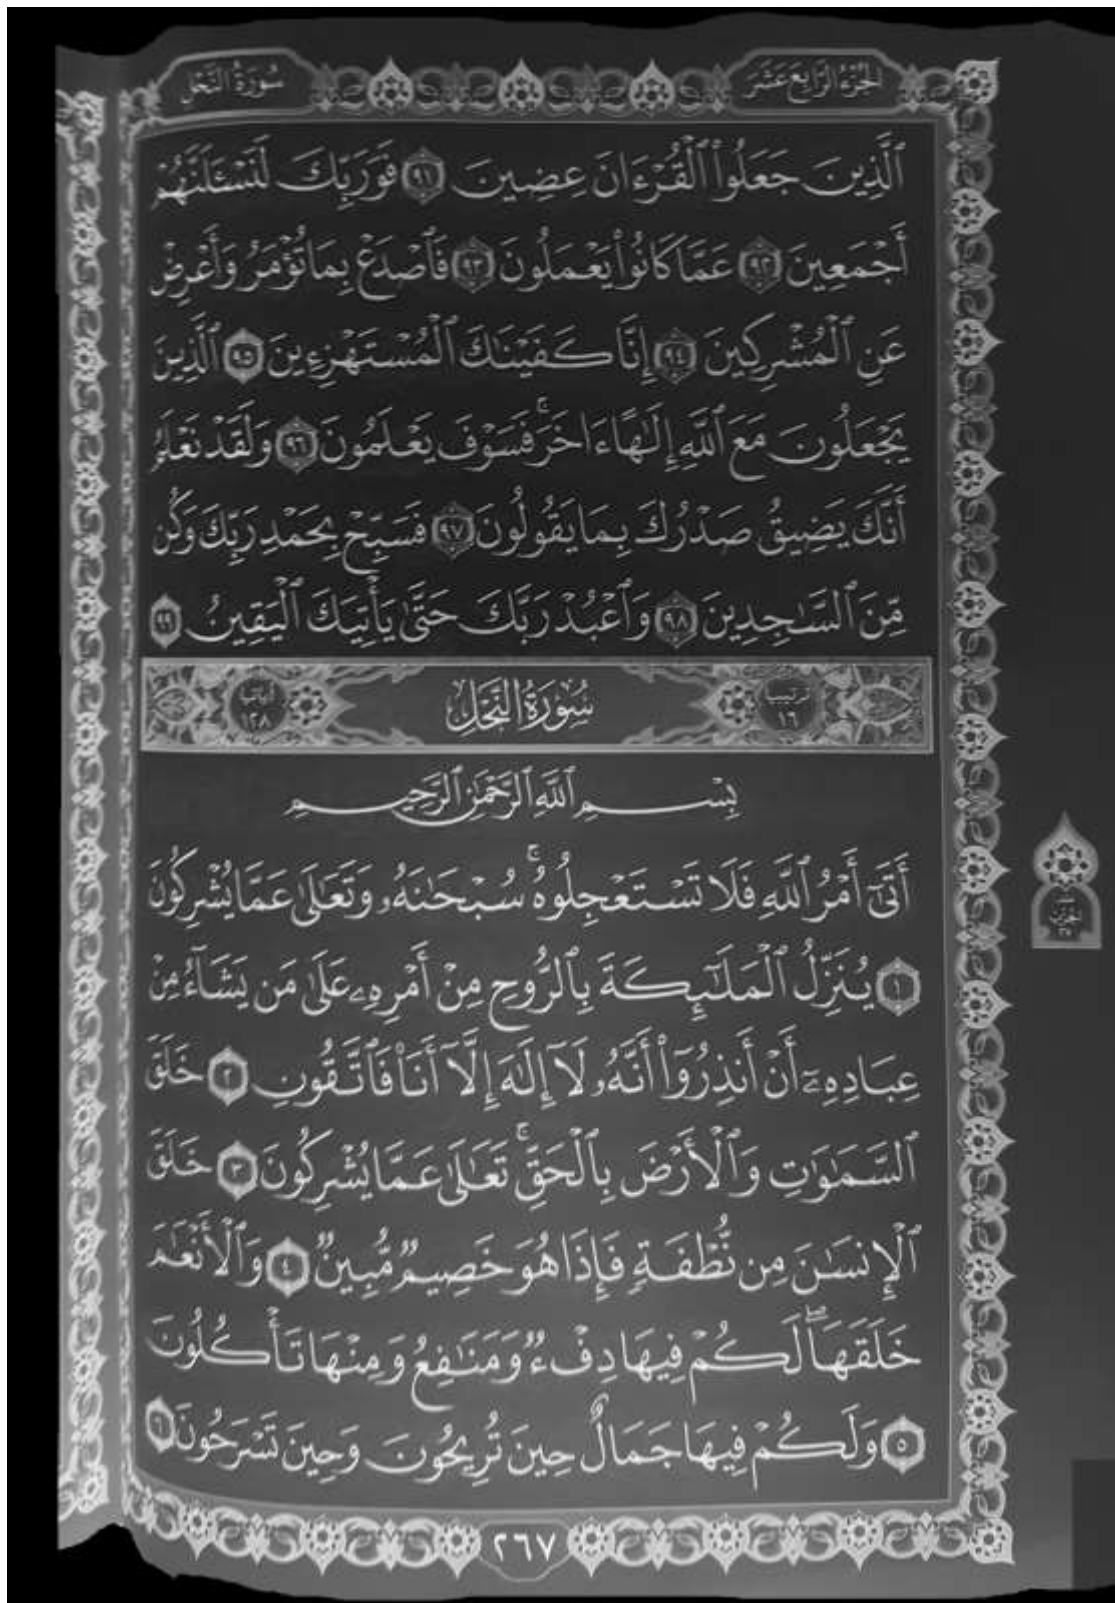 سُورَةُ النَّحْلِ
الجُزْءُ الرَّابِعَ عَشَرَ
ٱلَّذِينَ جَعَلُوا۟ ٱلْقُرْءَانَ عِضِينَ ٩١ فَوَرَبِّكَ لَنَسْـَٔلَنَّهُمْ
أَجْمَعِينَ ٩٢ عَمَّا كَانُوا۟ يَعْمَلُونَ ٩٣ فَٱصْدَعْ بِمَا تُؤْمَرُ وَأَعْرِضْ
عَنِ ٱلْمُشْرِكِينَ ٩٤ إِنَّا كَفَيْنَٰكَ ٱلْمُسْتَهْزِءِينَ ٩٥ ٱلَّذِينَ
يَجْعَلُونَ مَعَ ٱللَّهِ إِلَٰهًا ءَاخَرَ ۚ فَسَوْفَ يَعْلَمُونَ ٩٦ وَلَقَدْ نَعْلَمُ
أَنَّكَ يَضِيقُ صَدْرُكَ بِمَا يَقُولُونَ ٩٧ فَسَبِّحْ بِحَمْدِ رَبِّكَ وَكُن
مِّنَ ٱلسَّٰجِدِينَ ٩٨ وَٱعْبُدْ رَبَّكَ حَتَّىٰ يَأْتِيَكَ ٱلْيَقِينُ ٩٩
ترتيبها ١٦ سُورَةُ النَّحْلِ آياتها ١٢٨
بِسْمِ ٱللَّهِ ٱلرَّحْمَٰنِ ٱلرَّحِيمِ
أَتَىٰٓ أَمْرُ ٱللَّهِ فَلَا تَسْتَعْجِلُوهُ ۚ سُبْحَٰنَهُۥ وَتَعَٰلَىٰ عَمَّا يُشْرِكُونَ
١ يُنَزِّلُ ٱلْمَلَٰٓئِكَةَ بِٱلرُّوحِ مِنْ أَمْرِهِۦ عَلَىٰ مَن يَشَآءُ مِنْ
عِبَادِهِۦٓ أَنْ أَنذِرُوٓا۟ أَنَّهُۥ لَآ إِلَٰهَ إِلَّآ أَنَا۠ فَٱتَّقُونِ ٢ خَلَقَ
ٱلسَّمَٰوَٰتِ وَٱلْأَرْضَ بِٱلْحَقِّ ۚ تَعَٰلَىٰ عَمَّا يُشْرِكُونَ ٣ خَلَقَ
ٱلْإِنسَٰنَ مِن نُّطْفَةٍ فَإِذَا هُوَ خَصِيمٌ مُّبِينٌ ٤ وَٱلْأَنْعَٰمَ
خَلَقَهَا ۗ لَكُمْ فِيهَا دِفْءٌ وَمَنَٰفِعُ وَمِنْهَا تَأْكُلُونَ
٥ وَلَكُمْ فِيهَا جَمَالٌ حِينَ تُرِيحُونَ وَحِينَ تَسْرَحُونَ ٦
٢٦٧